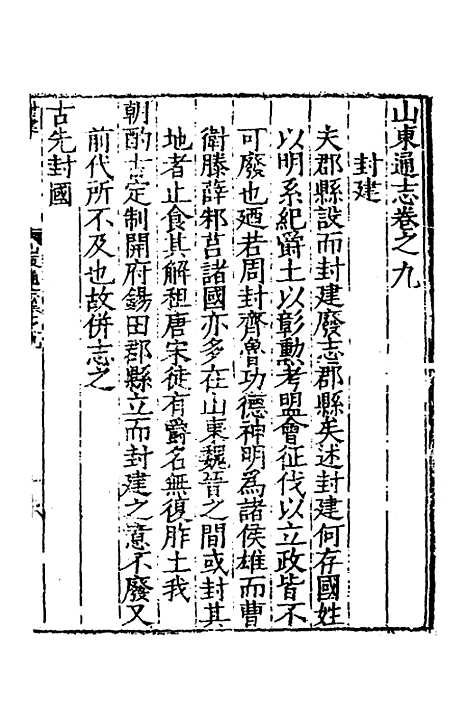 山東通志卷之九
封建
夫郡縣設而封建廢志郡縣矣述封建何存國姓
以明系紀爵土以彰勲考盟會征伐以立政皆不
可廢也廼若周封齊魯功德神明爲諸侯雄而曹
衛滕薛邾莒諸國亦多在山東魏晉之間或封其
地者止食其解租唐宋徒有爵名無復胙土我
朝酌古定制開府錫田郡縣立而封建之意不廢又
前代所不及也故併志之
古先封國